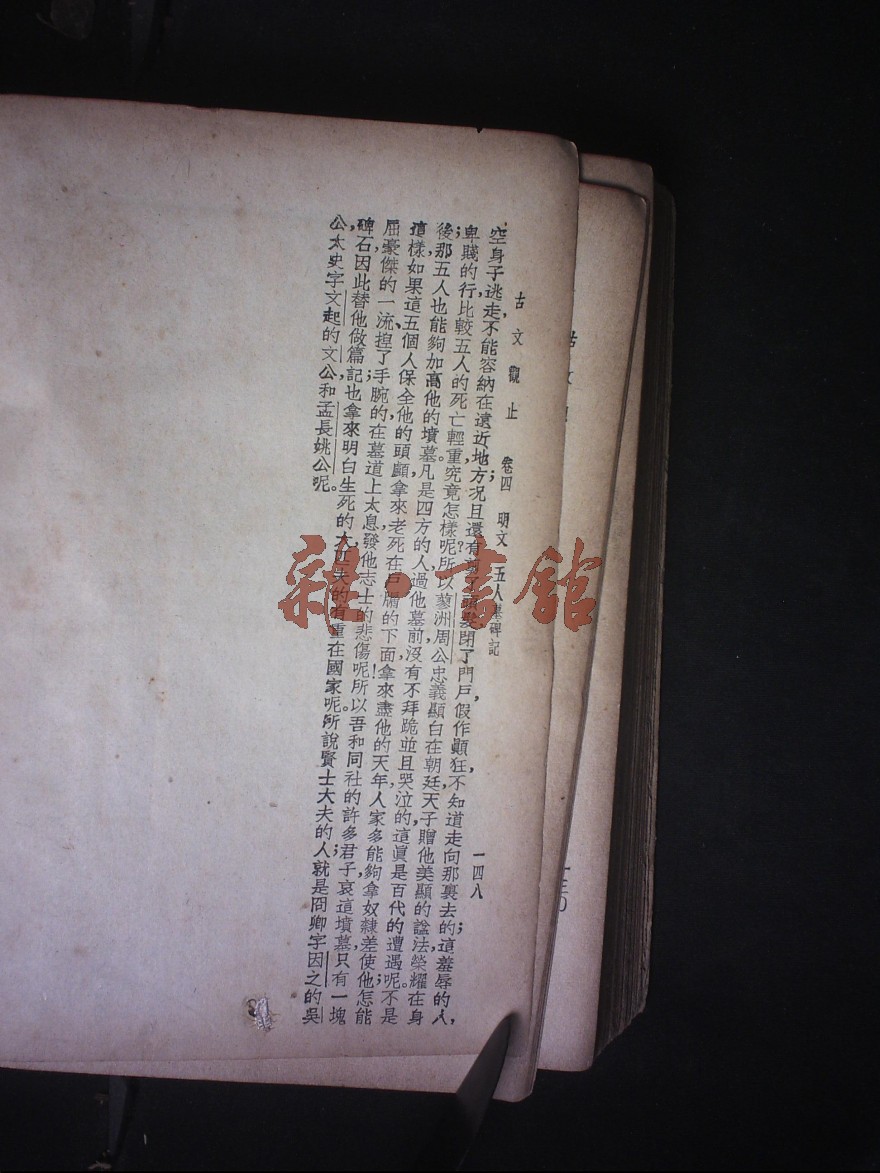 古文觀止 卷四 明文 五人墓碑記 一四八
空身子逃走，不能容納在遠近地方；况且還有剪了頭髮，閉了門戶，假作顚狂，不知道走向那裏去的；這羞辱的人，
卑賤的行，比較五人的死亡，輕重究竟怎樣呢？所以蓼洲周公，忠義顯白在朝廷，天子贈他美顯的諡法，榮耀在身
後；那五人也能夠加高他的墳墓。凡是四方的人，過他墓前，沒有不拜跪並且哭泣的，這眞是百代的遭遇呢。不是
這樣，如果這五個人保全他的頭顱，拿來老死在戶牖的下面，拿來盡他的天年，人家多能夠拿奴隸差使他；怎能
屈豪傑的一流，揑了手腕的在墓道上太息，發他志士的悲傷呢！所以吾和同社的許多君子，哀這墳墓，只有一塊
碑石，因此替他做篇記；也拿來明白生死的大，匹夫的有重在國家呢。所說賢士大夫的人；就是冏卿字因之的吳
公，太史字文起的文公，和孟長姚公呢。
雜·書館